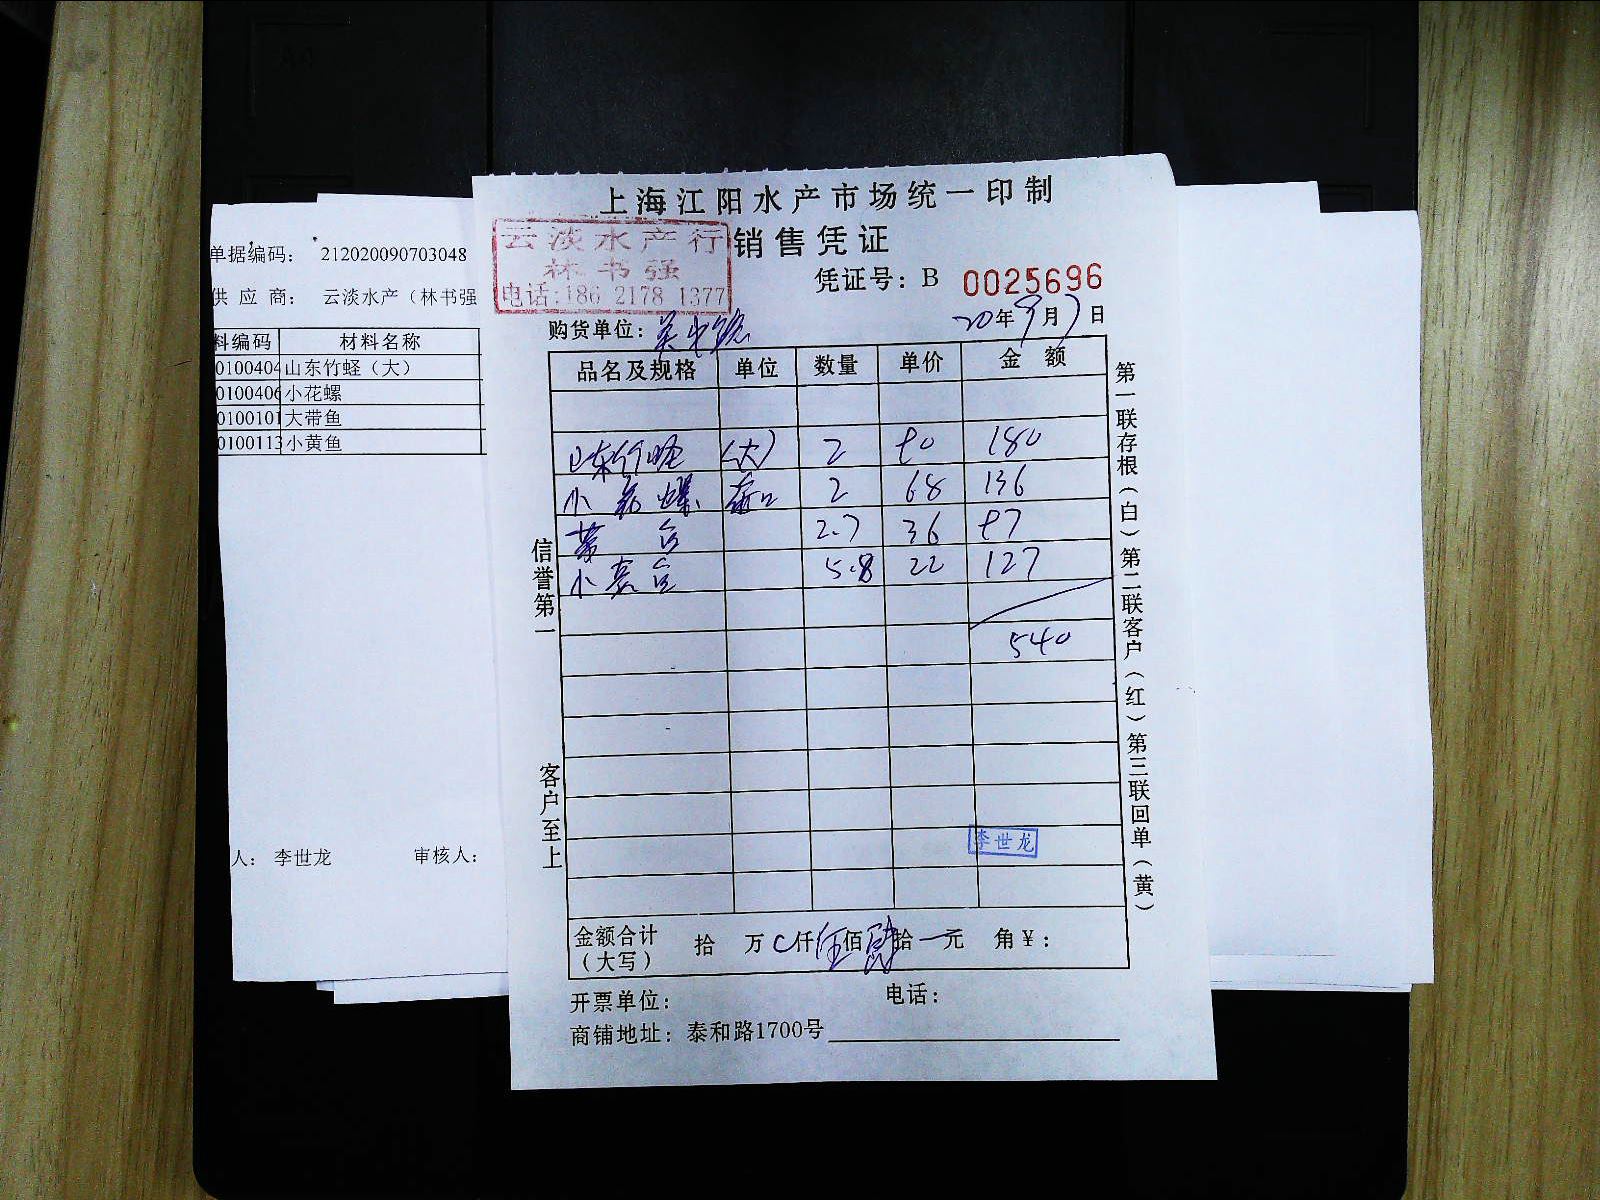 上海江阳水产市场统一印制
云淡水产行
林书强
电话:186 2178 1377
销售凭证
凭证号：B 0025696
购货单位：
20年9月7日
品名及规格 单位 数量 单价 金额
山东竹蛏 （大） 2 90 180
小花螺 2 68 136
2.7 36 97
小黄鱼 5.8 22 127
540
李世龙
金额合计（大写） 拾 万 仟伍佰肆拾一元 角￥：
开票单位： 电话：
商铺地址：泰和路1700号
信誉第一
客户至上
第一联存根（白）第二联客户（红）第三联回单（黄）
单据编码： 212020090703048
供应商： 云淡水产（林书强
料编码 材料名称
0100404 山东竹蛏（大）
0100406 小花螺
0100101 大带鱼
0100113 小黄鱼
人： 李世龙 审核人：